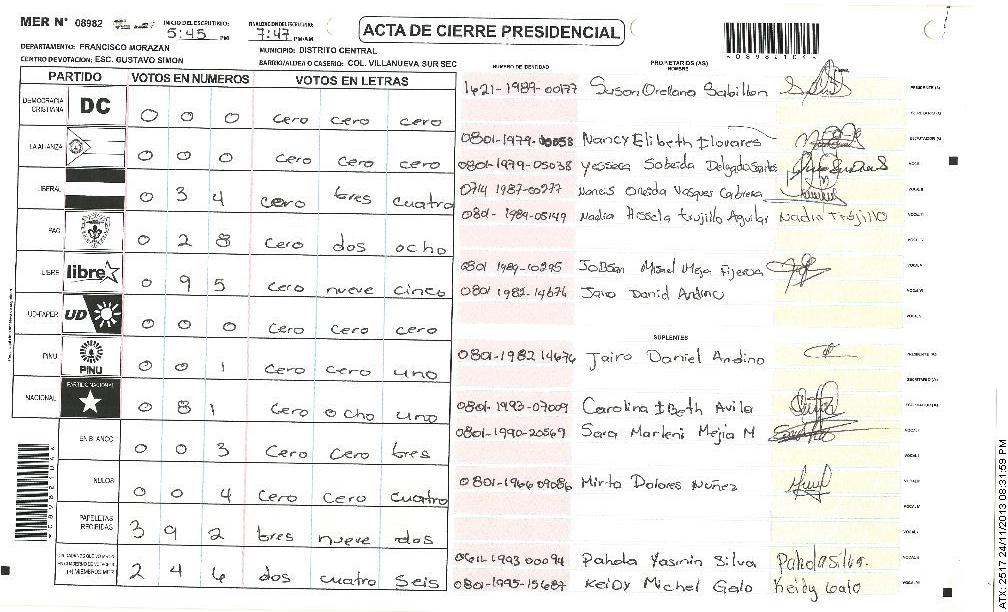 MER N° 08982
INICIO DEL ESCRUTINIO: 5:45 PM
FINALIZACION DEL ESCRUTINIO: 7:47 PM/AM
ACTA DE CIERRE PRESIDENCIAL
DEPARTAMENTO: FRANCISCO MORAZAN
MUNICIPIO: DISTRITO CENTRAL
CENTRO DE VOTACION: ESC. GUSTAVO SIMON
BARRIO/ALDEA O CASERIO: COL. VILLANUEVA SUR SEC
PARTIDO VOTOS EN NUMEROS VOTOS EN LETRAS
DEMOCRACIA CRISTIANA DC 0 0 0 cero cero cero
LA ALIANZA 0 0 0 cero cero cero
LIBERAL 0 3 4 cero tres cuatro
PAC 0 2 8 cero dos ocho
LIBRE libre 0 9 5 cero nueve cinco
UD-FAPER UD 0 0 0 cero cero cero
PINU PINU 0 0 1 cero cero uno
NACIONAL PARTIDO NACIONAL 0 8 1 cero ocho uno
EN BLANCO 0 0 3 cero cero tres
NULOS 0 0 4 cero cero cuatro
PAPELETAS RECIBIDAS 3 9 2 tres nueve dos
(+) MIEMBROS MER 2 4 6 dos cuatro seis
NUMERO DE IDENTIDAD
PROPIETARIOS (AS)
NOMBRE
1621-1989-00177 Suson Orellana Sabillon PRESIDENTE (A)
SECRETARIO (A)
0801-1979-00058 Nancy Elibeth Llovares ESCRUTADOR (A)
0801-1979-05038 Yesseca Sobeida Delgado Santos VOCAL I
0714 1987-00277 Vasques Cabrera VOCAL II
0801-1984-05149 Nadia Trujillo Aguilar Nadia Trujillo VOCAL III
0801 1989-10295 Misael Mejia Figeroa
0801 1982-14676 Jairo Daniel Andino
SUPLENTES
0801-1982 14676 Jairo Daniel Andino PRESIDENTE (A)
SECRETARIO (A)
0801-1993-07009 Carolina Ibeth Avila ESCRUTADOR (A)
0801-1990-20569 Sara Marleni Mejia M VOCAL I
0801-1966 09086 Mirta Dolores Nuñez
0611-1993 00094 Pahola Yasmin Silva Pahola Silva.
0801-1995-15687 Keidy Michel Galo Keidy Galo
ATX 2517 24/11/2013 08:31:59 PM